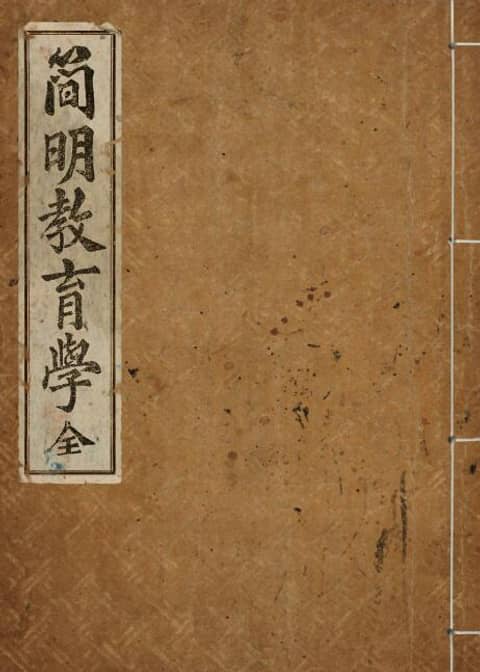 簡明教育學 全